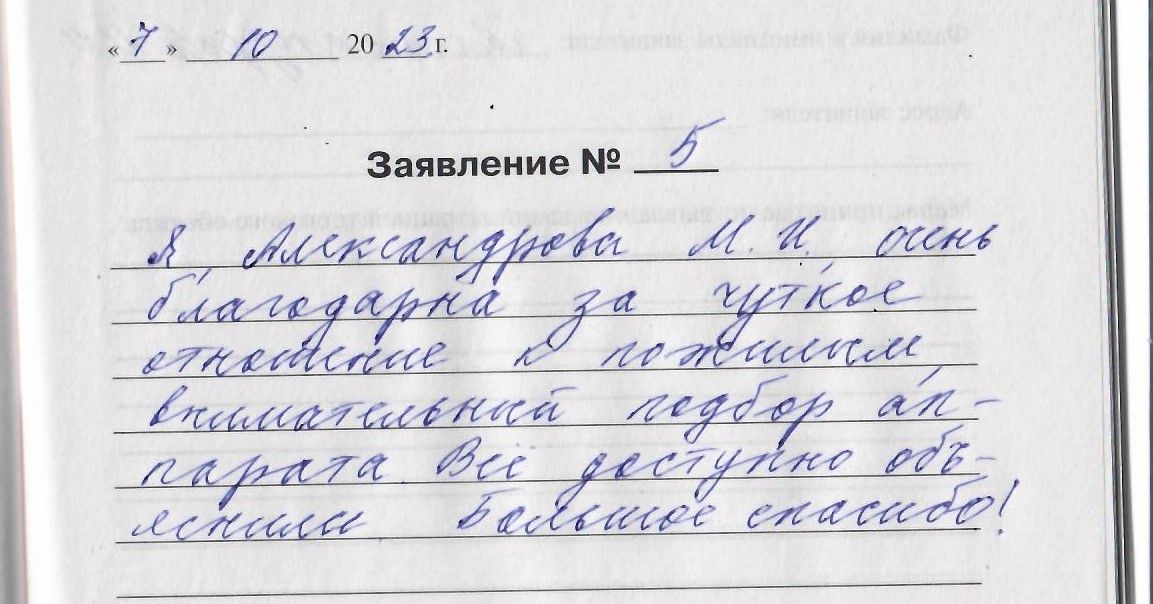 « 7 » 10 20 23 г.
Заявление № 5
Я, Александрова М. И. очень
благодарна за чуткое
отношение к пожилым,
внимательный подбор ап-
парата. Всё доступно объ-
яснили. Большое спасибо!